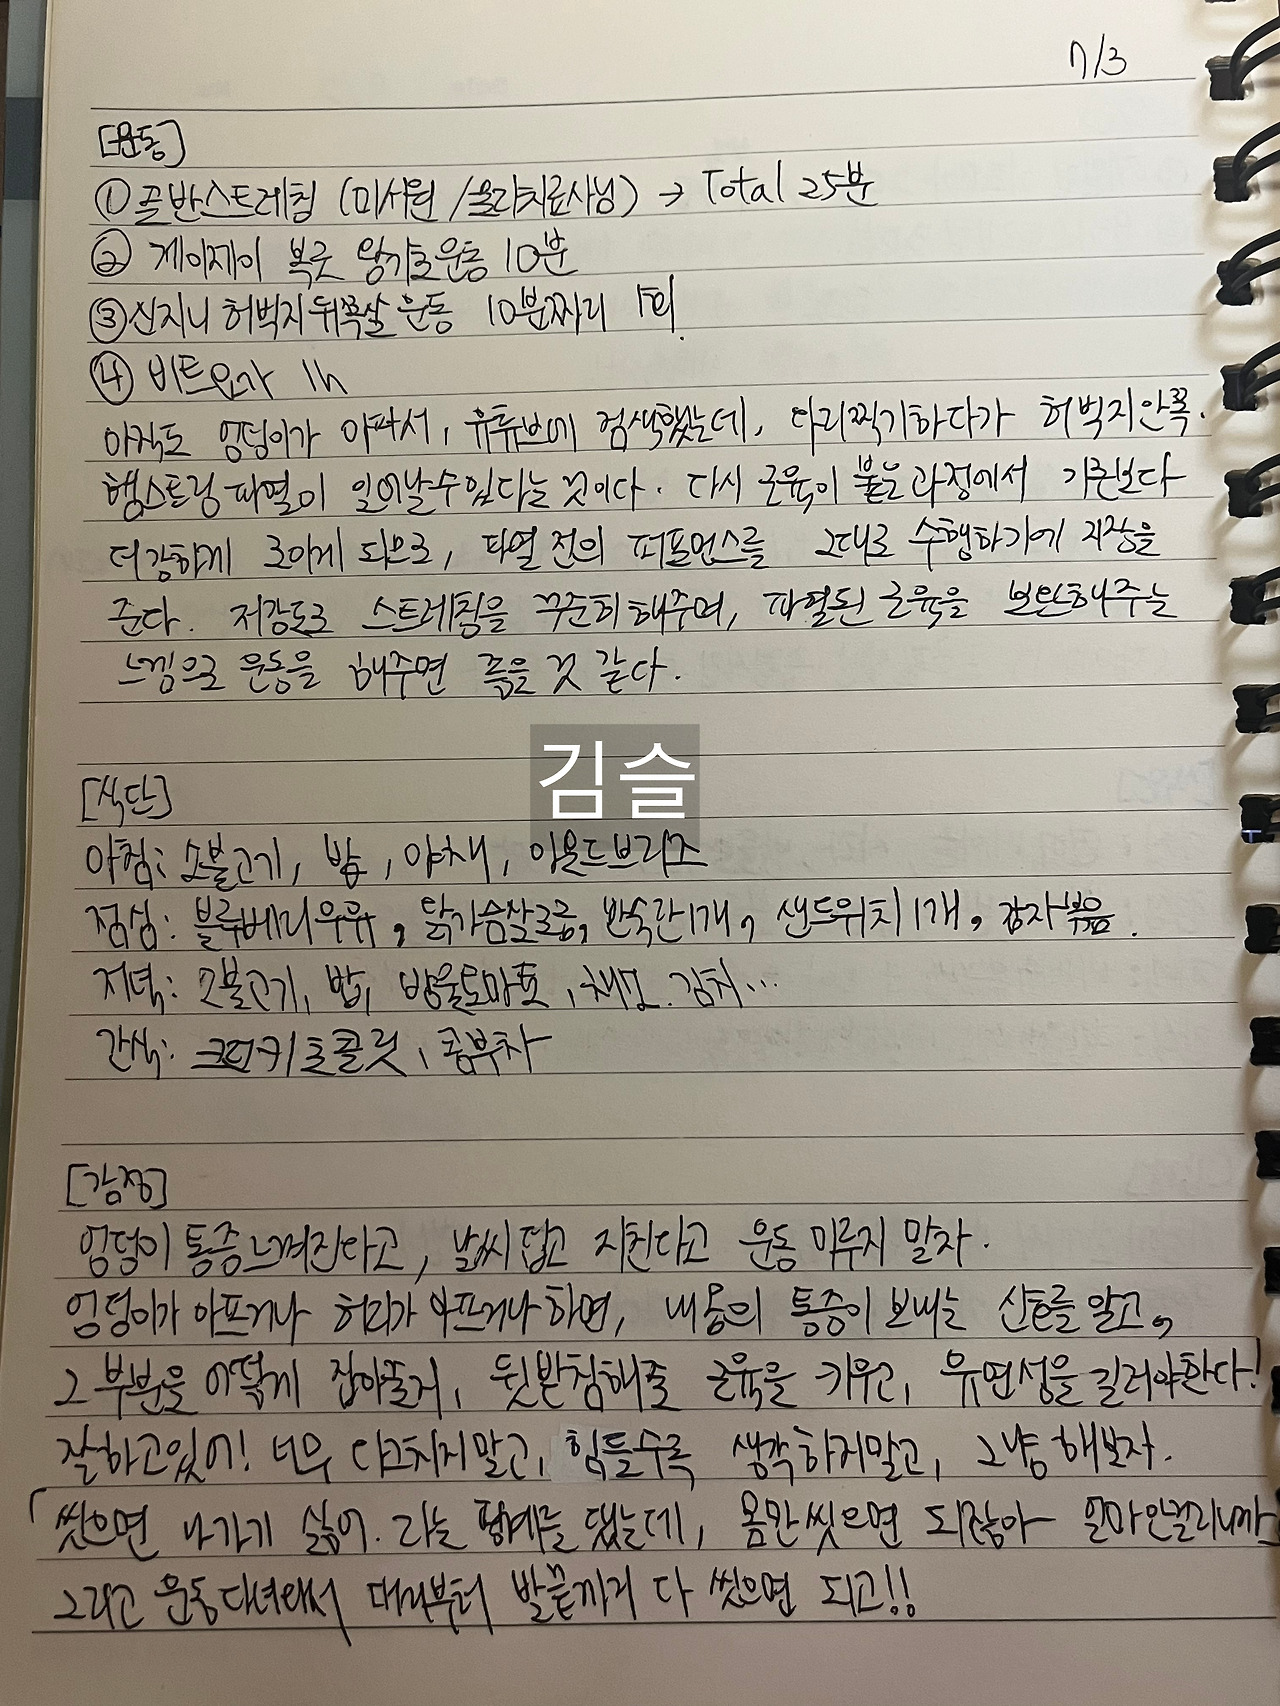 7/3
[운동]
① 골반스트레칭 (미서원 /물리치료사님) → Total 25분
② 제이제이 복근 왕기초운동 10분
③ 신지니 허벅지 뒤쪽살 운동 10분짜리 1회.
④ 비트요가 1h
아직도 엉덩이가 아파서, 유튜브에 검색했는데, 다리찢기하다가 허벅지안쪽.
햄스트링 파열이 일어날수있다는 것이다. 다시 근육이 붙는 과정에서 기존보다
더강하게 조이게 되므로, 파열 전의 퍼포먼스를 그대로 수행하기에 지장을
준다. 저강도로 스트레칭을 꾸준히 해주며, 파열된 근육을 보완해주는
느낌으로 운동을 해주면 좋을 것 같다.
김슬
[식단]
아침: 소불고기, 밥, 야채, 아몬드브리즈
점심: 블루베리우유, 닭가슴살조금, 반숙란1개, 샌드위치1개, 감자볶음.
저녁: 소불고기, 밥, 방울토마토, 채소. 김치...
간식: 초콜릿, 콤부차
[감정]
엉덩이 통증느껴진다고, 날씨 덥고 지친다고 운동 미루지 말자.
엉덩이가 아프거나 허리가 아프거나 하면, 내몸의 통증이 보내는 신호를 알고,
그 부분을 어떻게 잡아줄지, 뒷받침해줄 근육을 키우고, 유연성을 길러야한다!
잘하고있어! 너무 다그치지말고, 힘들수록 생각하지말고, 그냥 해보자.
「씻으면 나가기 싫어. 라는 핑계를 댔는데, 몸만 씻으면 되잖아 얼마안걸리니까
그리고 운동다녀와서 머리부터 발끝까지 다 씻으면 되고!!